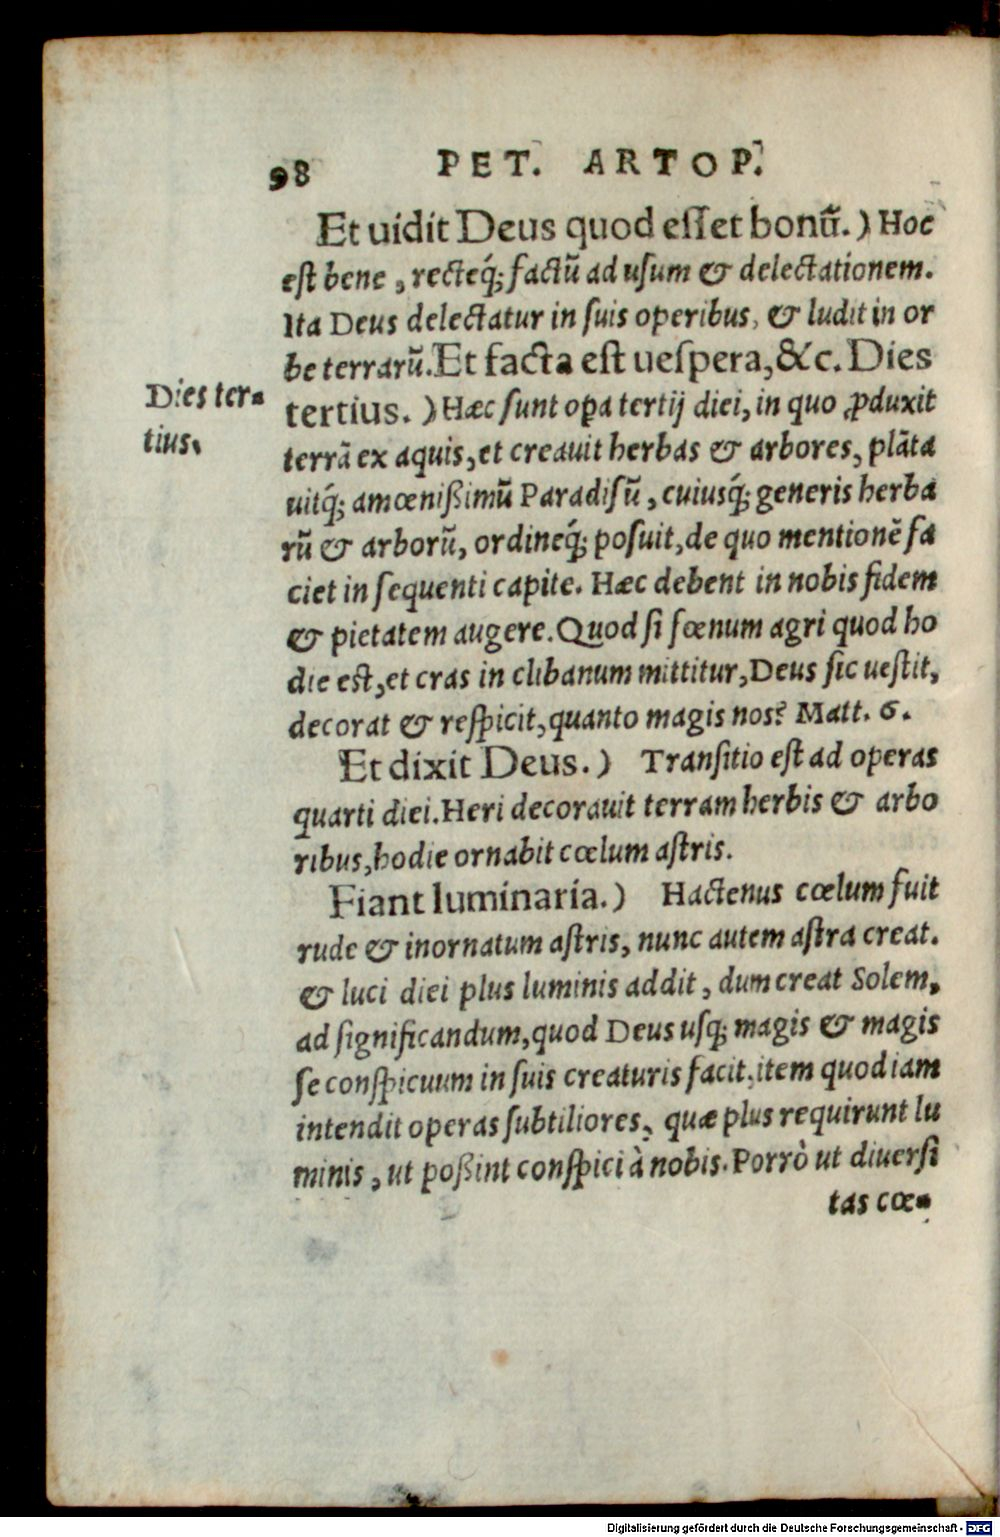 98 PET. ARTOP.
Et uidit Deus quod eſſet bonũ.) Hoc
eſt bene, recteq́; factũ ad uſum & delectationem.
Ita Deus delectatur in ſuis operibus, & ludit in or
be terrarũ. Et facta eſt ueſpera, &c. Dies
Dies ter-
tius.
tertius.) Hæc ſunt opa tertij diei, in quo ꝓduxit
terrã ex aquis, et creauit herbas & arbores, plãta
uitq́; amœnißimũ Paradiſũ, cuiusq́; generis herba
rũ & arborũ, ordineq́; poſuit, de quo mentionẽ fa
ciet in ſequenti capite. Hæc debent in nobis fidem
& pietatem augere. Quod ſi fœnum agri quod ho
die eſt, et cras in clibanum mittitur, Deus ſic ueſtit,
decorat & reſpicit, quanto magis nos? Matt. 6.
Et dixit Deus.) Tranſitio eſt ad operas
quarti diei. Heri decorauit terram herbis & arbo
ribus, hodie ornabit cœlum aſtris.
Fiant luminaria.) Hactenus cœlum fuit
rude & inornatum aſtris, nunc autem aſtra creat.
& luci diei plus luminis addit, dum creat Solem,
ad ſignificandum, quod Deus uſq; magis & magis
ſe conſpicuum in ſuis creaturis facit, item quod iam
intendit operas ſubtiliores, quæ plus requirunt lu
minis, ut poßint conſpici à nobis. Porrò ut diuerſi
tas cœ-
Digitalisierung gefördert durch die Deutsche Forschungsgemeinschaft - DFG